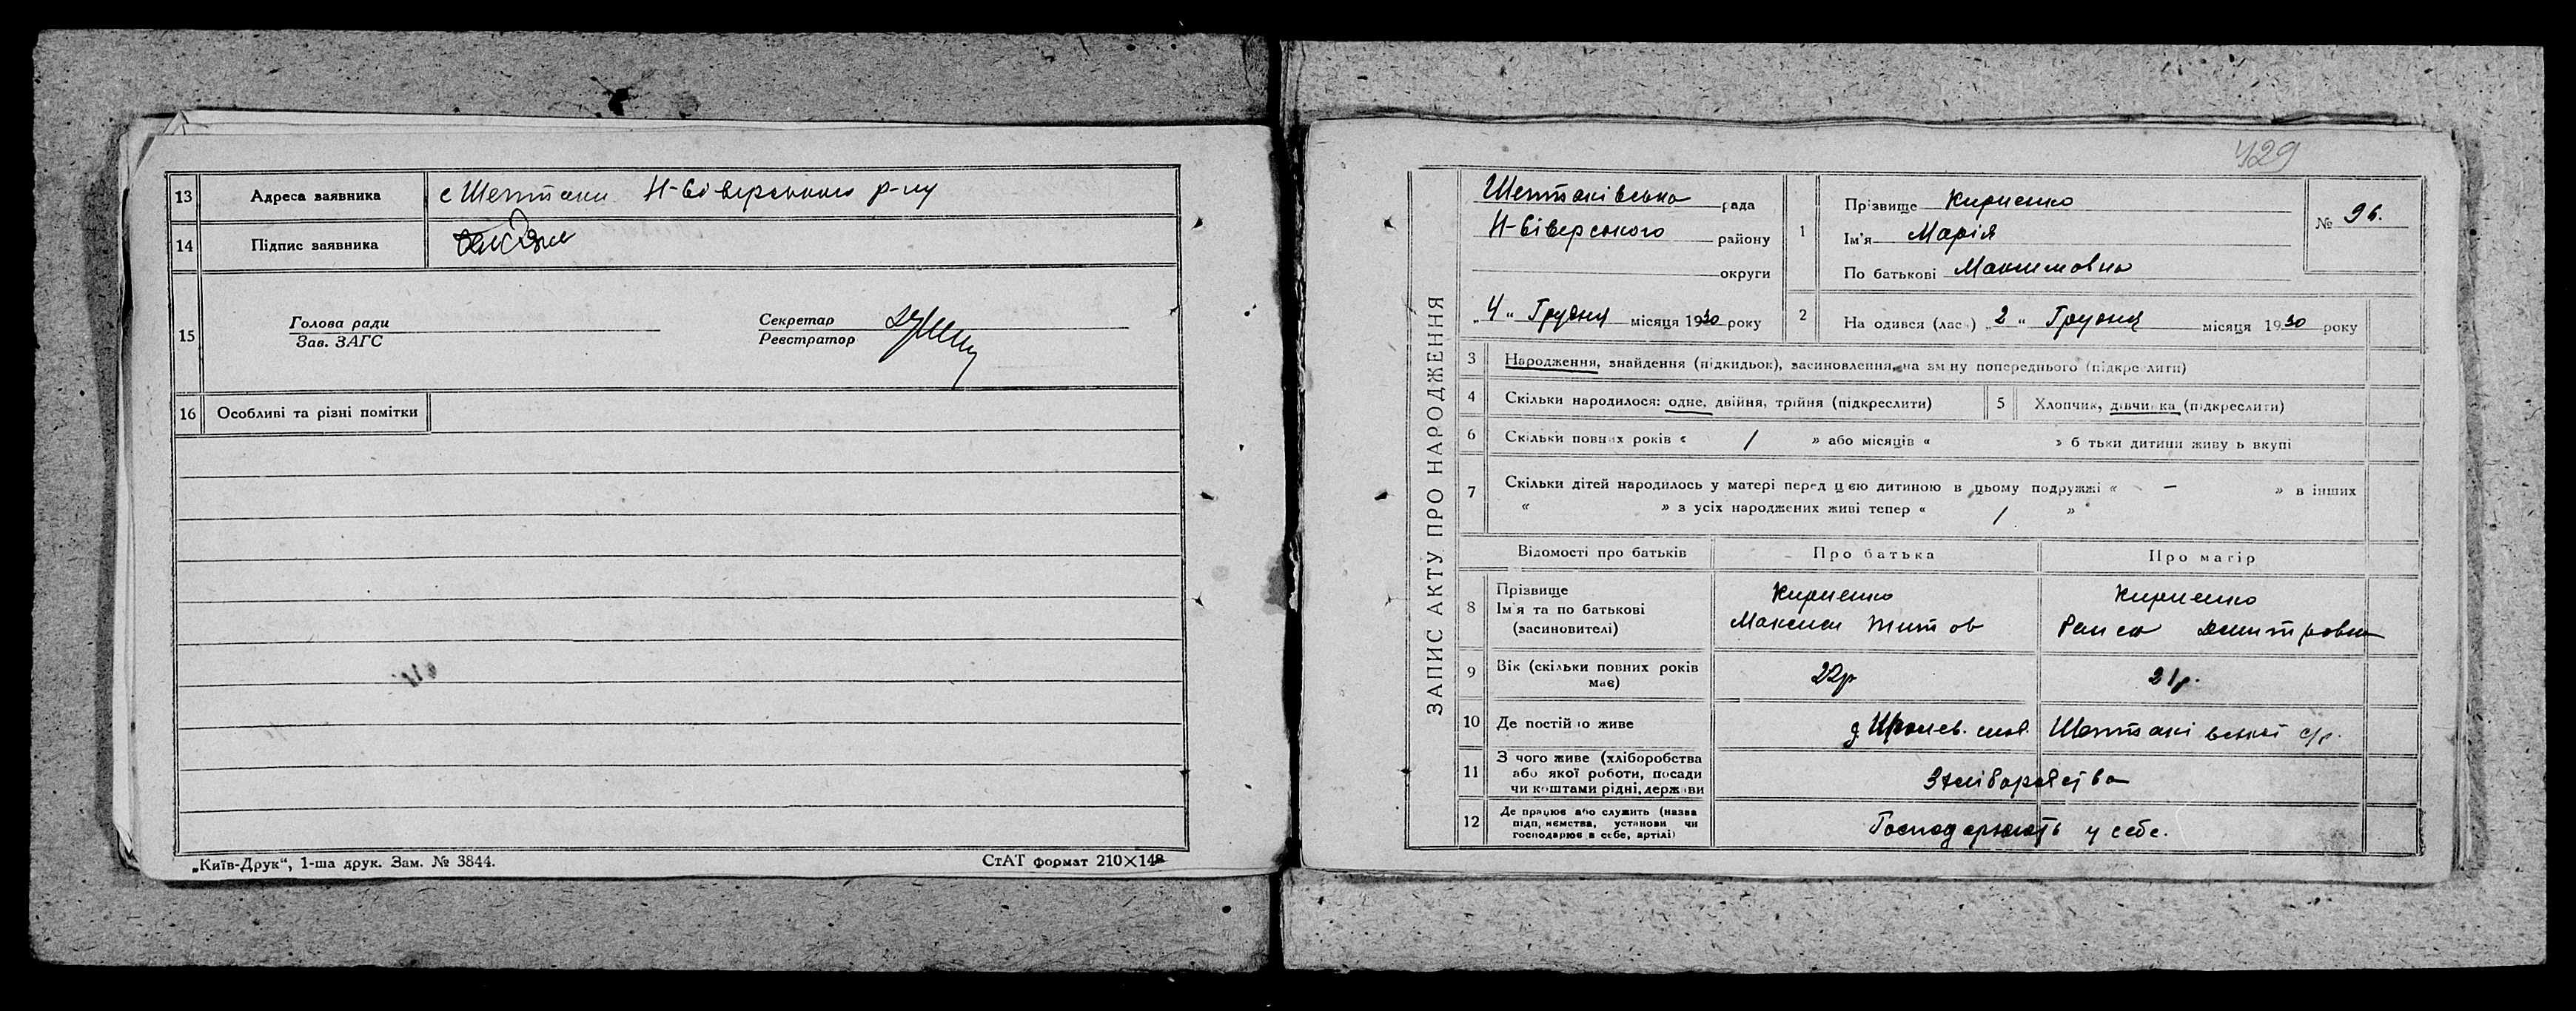 13 Адреса заявника с Шептаки Н-Сіверського р-ну
14 Підпис заявника
15 Голова ради
Зав. ЗАГС
Секретар
Реєстратор
16 Особливі та різні помітки
„Київ-Друк“, 1-ша друк. Зам. № 3844.
СтАТ формат 210×148
429
ЗАПИС АКТУ ПРО НАРОДЖЕННЯ
Шептаківська рада
Н-Сіверського району
округи
„4“ Грудня місяця 1930 року
1 Прізвище Кириенко
Ім'я Марія
По батькові Максимовна
№ 96.
2 На одився (лась) „2“ Грудня місяця 1930 року
3 Народження, знайдення (підкидьок), засиновлення, на зм ну попереднього (підкреслити)
4 Скільки народилося: одне, двійня, трійня (підкреслити)
5 Хлопчик, дівчинка (підкреслити)
6 Скільки повних років « / » або місяців « » б тьки дитини живу ь вкупі
7 Скільки дітей народилось у матері перед цією дитиною в цьому подружжі « – » в інших
« » з усіх народжених живі тепер « / »
Відомості про батьків Про батька Про матір
8 Прізвище
Ім'я та по батькові
(засиновителі)
Кириенко
Максим Титов
Кириенко
Раиса Дмитровна
9 Вік (скільки повних років
має)
22р
21р.
10 Де постійно живе
Шептаківської с/р.
11 З чого живе (хліборобства
або якої роботи, посади
чи коштами рідні, держави
З хліборобства
12 Де працює або служить (назва
підп, иємства, установи чи
господарює в себе, артілі)
Господарюють у себе.